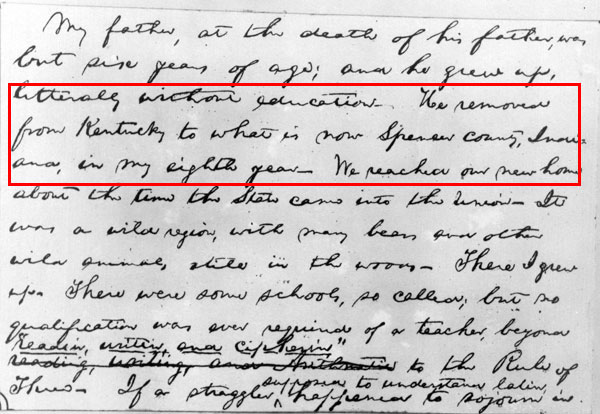 My father, at the death of his father, was
but six years of age; and he grew up,
litterally without education. He removed
from Kentucky to what is now Spencer county, Indi-
ana, in my eighth year. We reached our new home
about the time the State came into the Union. It
was a wild region, with many bears and other
wild animals, still in the woods. There I grew
up. There were some schools, so called; but no
qualification was ever required of a teacher, beyond
"readin, writin, and cipherin"
reading, writing, and Arithmetic to the Rule of
supposed to understand latin,
Three. If a straggler happened to sojourn in